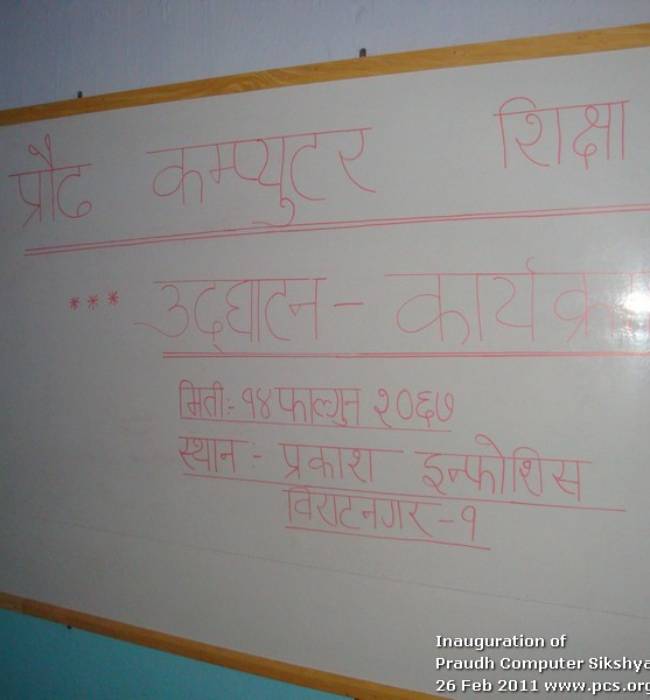 प्रौढ कम्प्युटर शिक्षा
*** उद्घाटन - कार्यक्र
मिती:- १४ फाल्गुन २०६७
स्थान :- प्रकाश इन्फोशिस
विराटनगर - १
Inauguration of
Praudh Computer Sikshya
26 Feb 2011 www.pcs.org